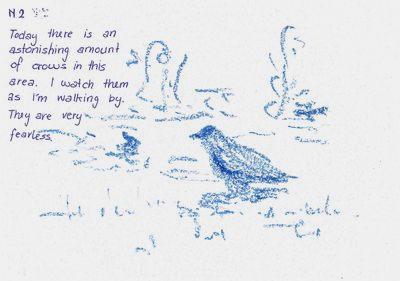 N2
Today there is an
astonishing amount
of crows in this
area. I watch them
as I'm walking by.
They are very
fearless.